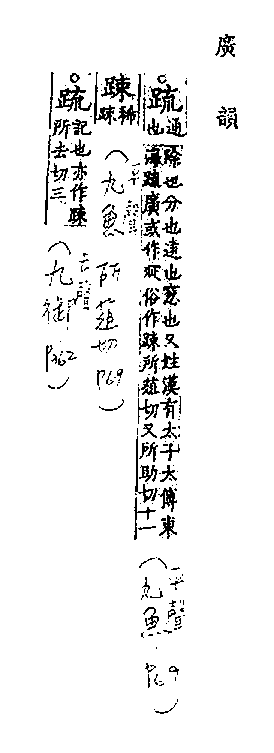 廣韻
○疏 通也除也分也遠也窓也又姓漢有太子太傅東海疏廣或作疎俗作踈所葅切又所助切十一
(平聲 九魚 P69)
踈 稀踈
(平聲 九魚 所葅切 P69)
○疏 記也亦作踈所去切三
(去聲 九御 P362)